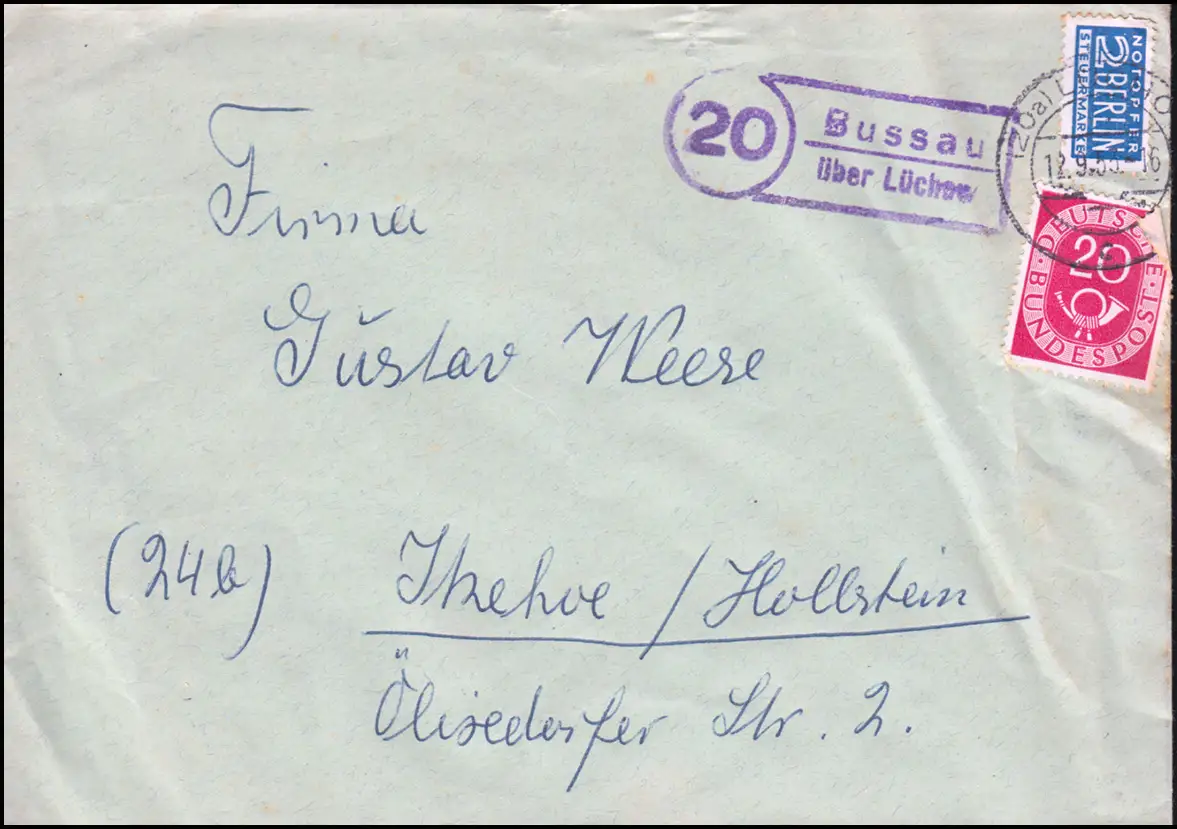 20
Bussau
über Lüchow
NOTOPFER
2 BERLIN
STEUERMARKE
(20a) L
12.9.53-16
c
DEUTSCHE BUNDESPOST
20
Firma
Gustav Weese
(24b) Itzehoe / Hollstein
Ölixdorfer Str. 2.